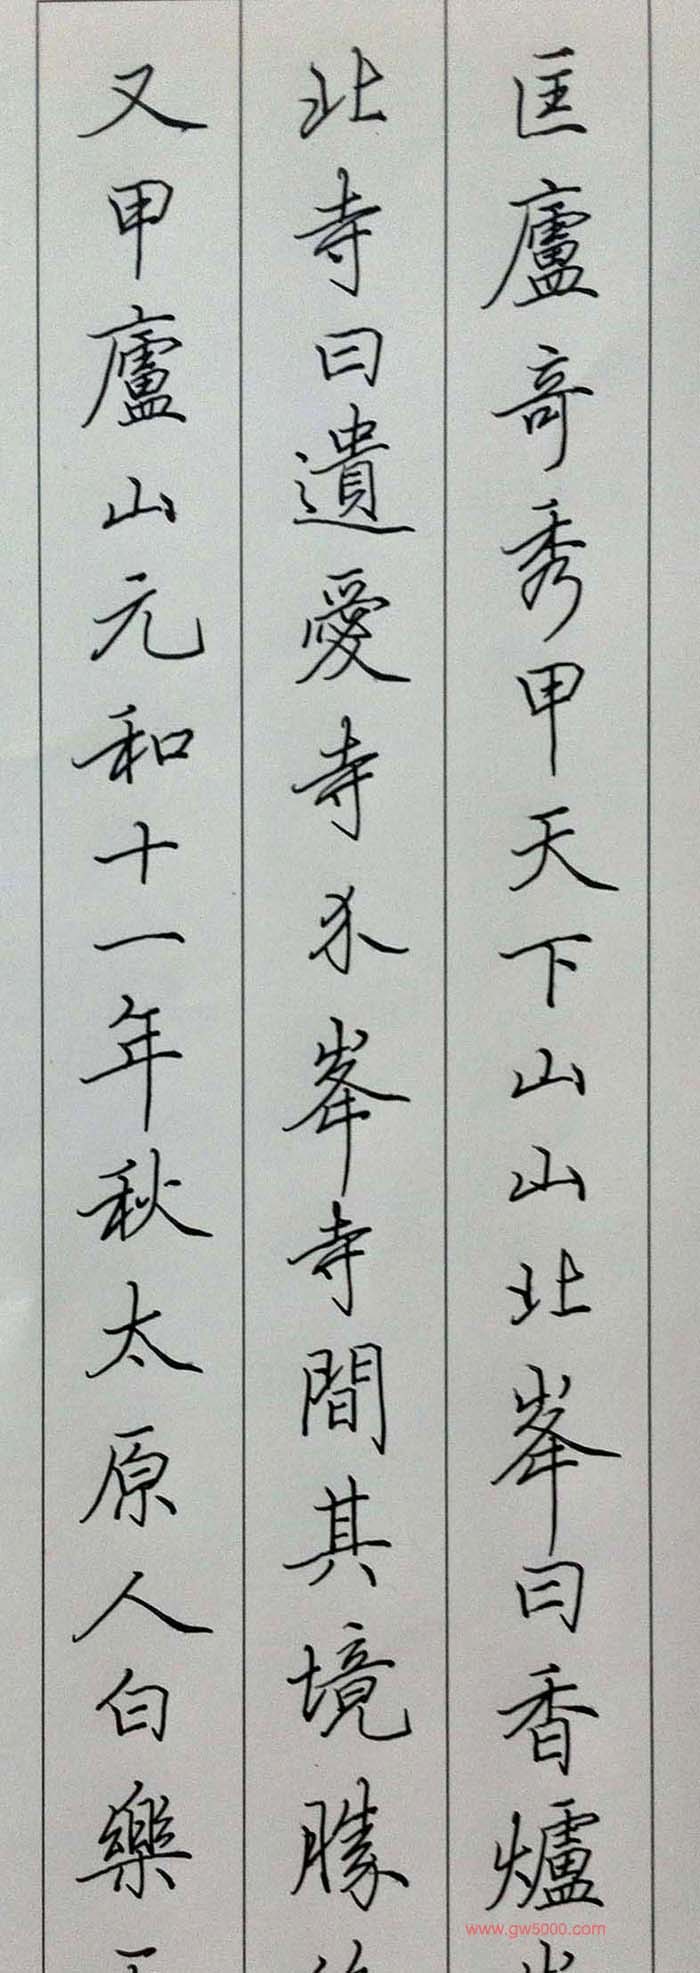 匡廬奇秀甲天下山山北峯曰香爐
北寺曰遺愛寺介峯寺間其境勝
又甲廬山元和十一年秋太原人白樂
www.gw5000.com